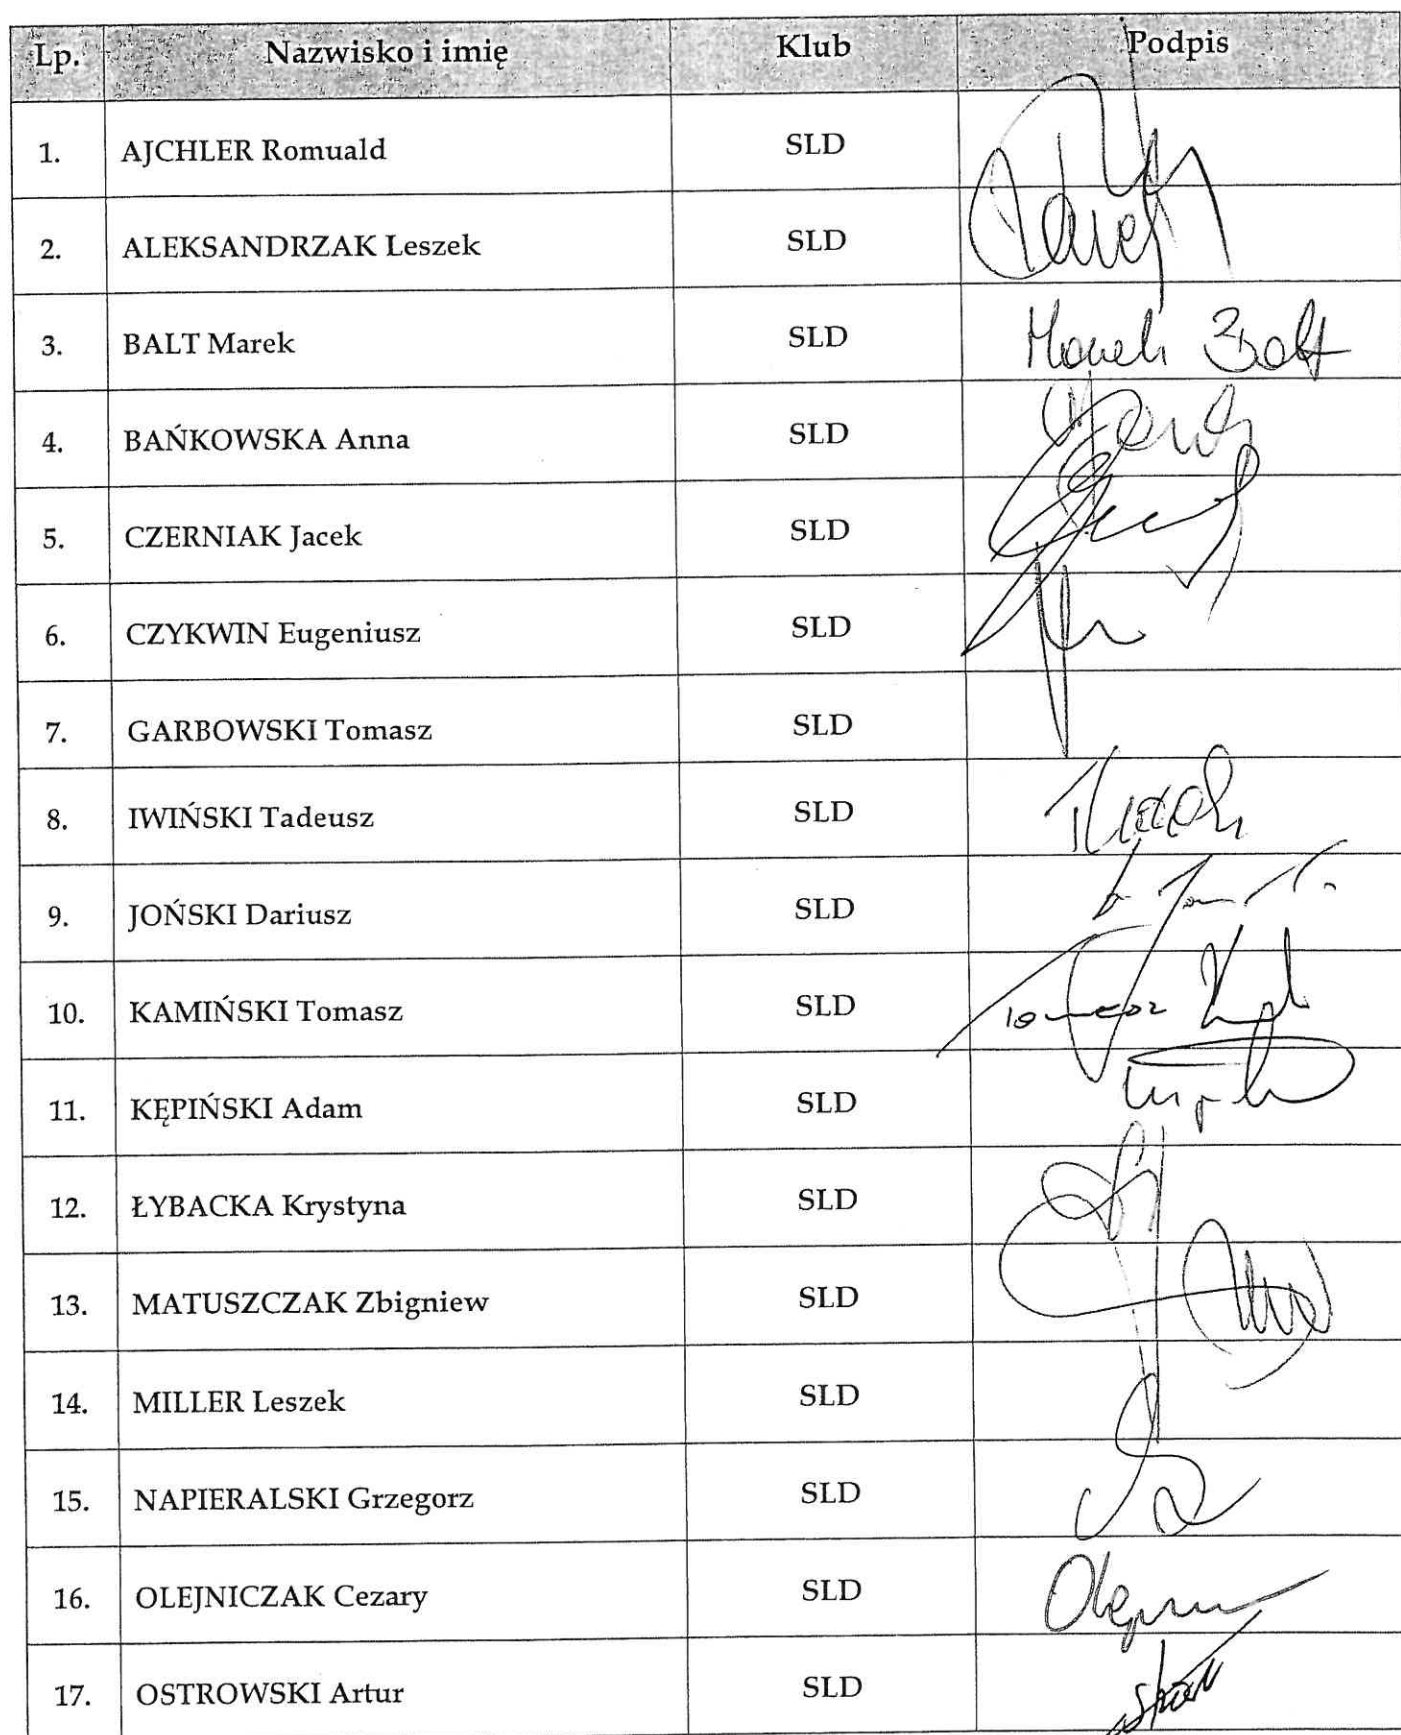 Lp. Nazwisko i imię Klub Podpis
1. AJCHLER Romuald SLD
2. ALEKSANDRZAK Leszek SLD
3. BALT Marek SLD Marek Balt
4. BAŃKOWSKA Anna SLD
5. CZERNIAK Jacek SLD
6. CZYKWIN Eugeniusz SLD
7. GARBOWSKI Tomasz SLD
8. IWIŃSKI Tadeusz SLD
9. JOŃSKI Dariusz SLD
10. KAMIŃSKI Tomasz SLD Tomasz
11. KĘPIŃSKI Adam SLD
12. ŁYBACKA Krystyna SLD
13. MATUSZCZAK Zbigniew SLD
14. MILLER Leszek SLD
15. NAPIERALSKI Grzegorz SLD
16. OLEJNICZAK Cezary SLD
17. OSTROWSKI Artur SLD